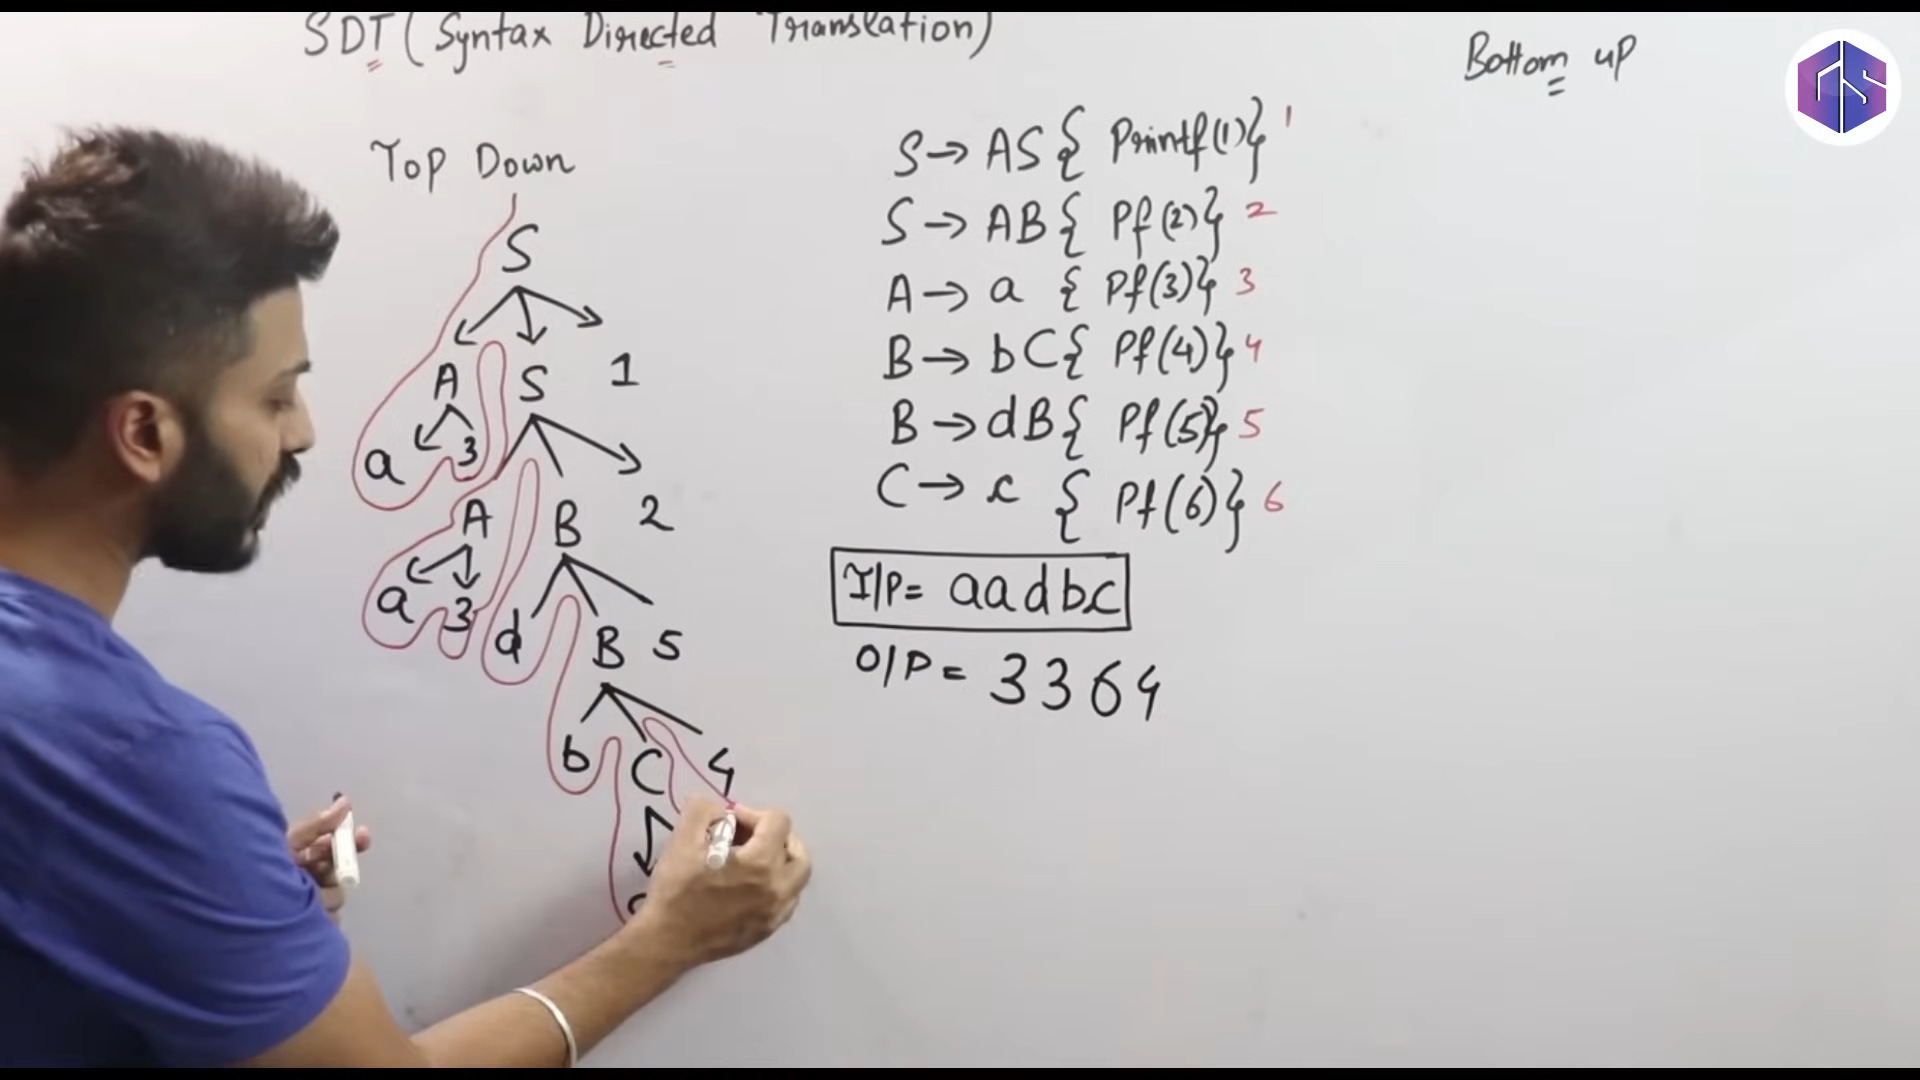 SDT (Syntax Directed Translation)
Bottom up
Top Down
S
A S 1
a 3
A B 2
a 3
d B 5
b C 4
S → AS { Printf(1)} 1
S → AB { Pf(2)} 2
A → a { Pf(3)} 3
B → bC { Pf(4)} 4
B → dB { Pf(5)} 5
C → c { Pf(6)} 6
I/P = aadbc
O/P = 3364